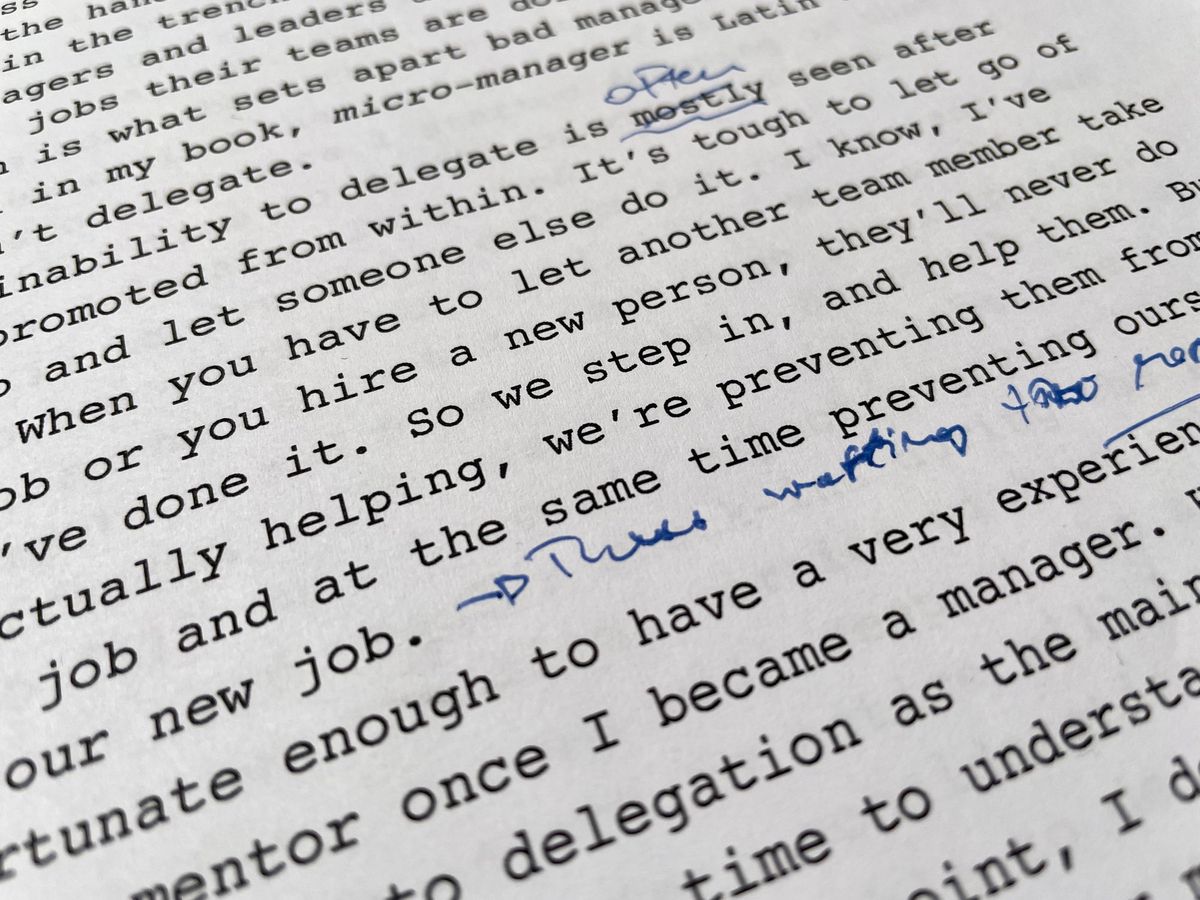 the
in the
agers and leaders
jobs their teams are
is what sets apart bad
in my book, micro-manager is Latin
't delegate.
often
inability to delegate is mostly seen after
promoted from within. It's tough to let go of
and let someone else do it. I know, I've
When you have to let another team member take
ob or you hire a new person, they'll never do
've done it. So we step in, and help them.
ctually helping, we're preventing them from
job and at the same time preventing ours
our new job.
rtunate enough to have a very experien
mentor once I became a manager.
to delegation as the main
time to understa
oint, I